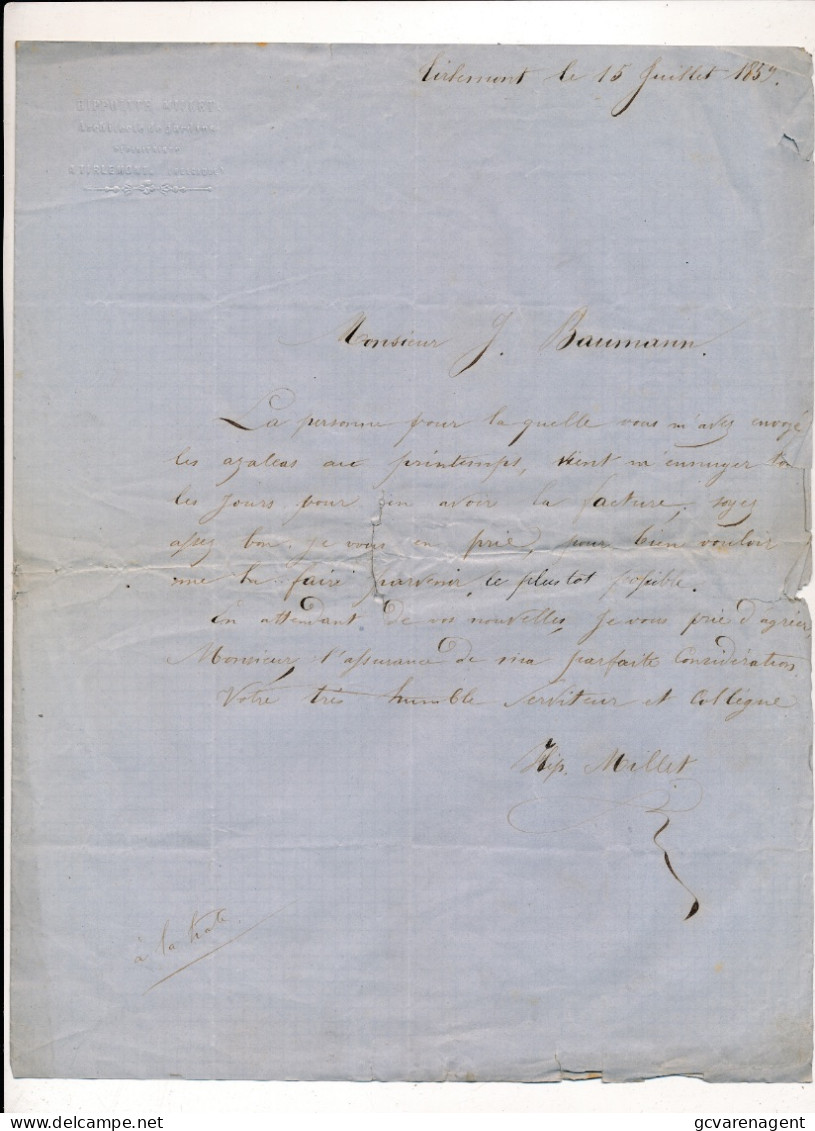 Tirlemont le 15 Juillet 1859.
HIPPOLYTE MILLET
Architecte de Jardins
A TIRLEMONT
Monsieur J. Baumann.
La personne pour laquelle vous m'avez envoyé
les azaleas au printemps, vient m'ennuyer tou
les jours pour en avoir la facture, soyez
assez bon, je vous en prie, pour bien vouloir
me la faire parvenir le plustot possible.
En attendant de vos nouvelles, Je vous prie d'agréer,
Monsieur l'assurance de ma parfaite Considération.
Votre très humble Serviteur et Collègue
Hip. Millet
à la hate.
delcampe.net
gcvarenagent